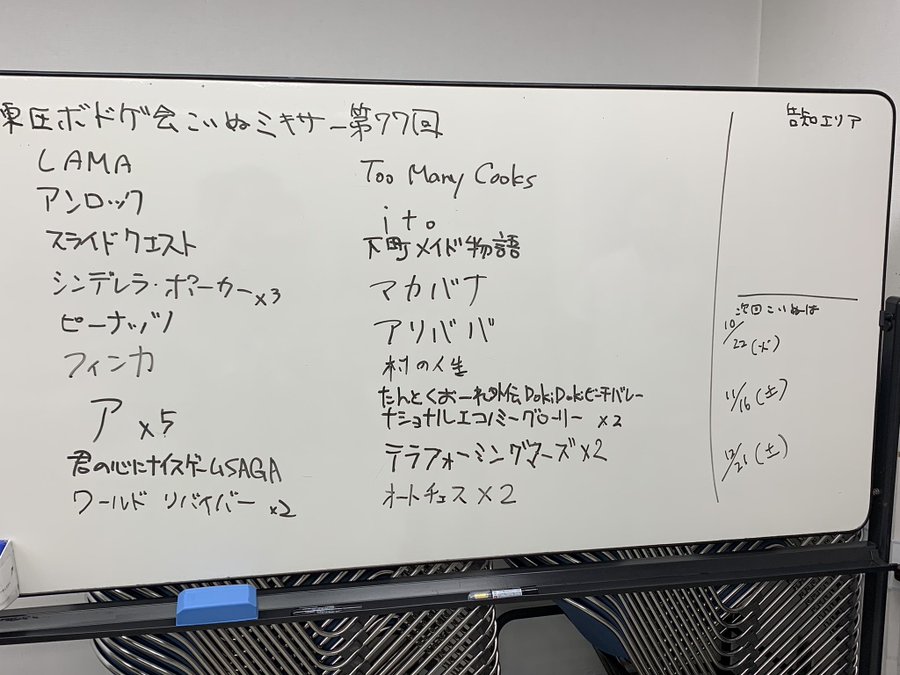 東圧ボドゲ会こいぬミキサー第77回
LAMA
アンロック
スライドクエスト
シンデレラ・ポーカー×3
ピーナッバノ
フィンカ
ア ×5
君の心にナイスゲームSAGA
ワールド リバイバー ×2
Too Many Cooks
ito
下町メイド物語
マカバナ
アリババ
村の人生
たんとくおーれ外伝DokiDokiビーチバレー
ナショナルエコノミーグローリー ×2
テラフォーミングマーズ×2
オートチェス×2
告知エリア
次回こいぬは
10/22(火)
11/16(土)
12/21(土)